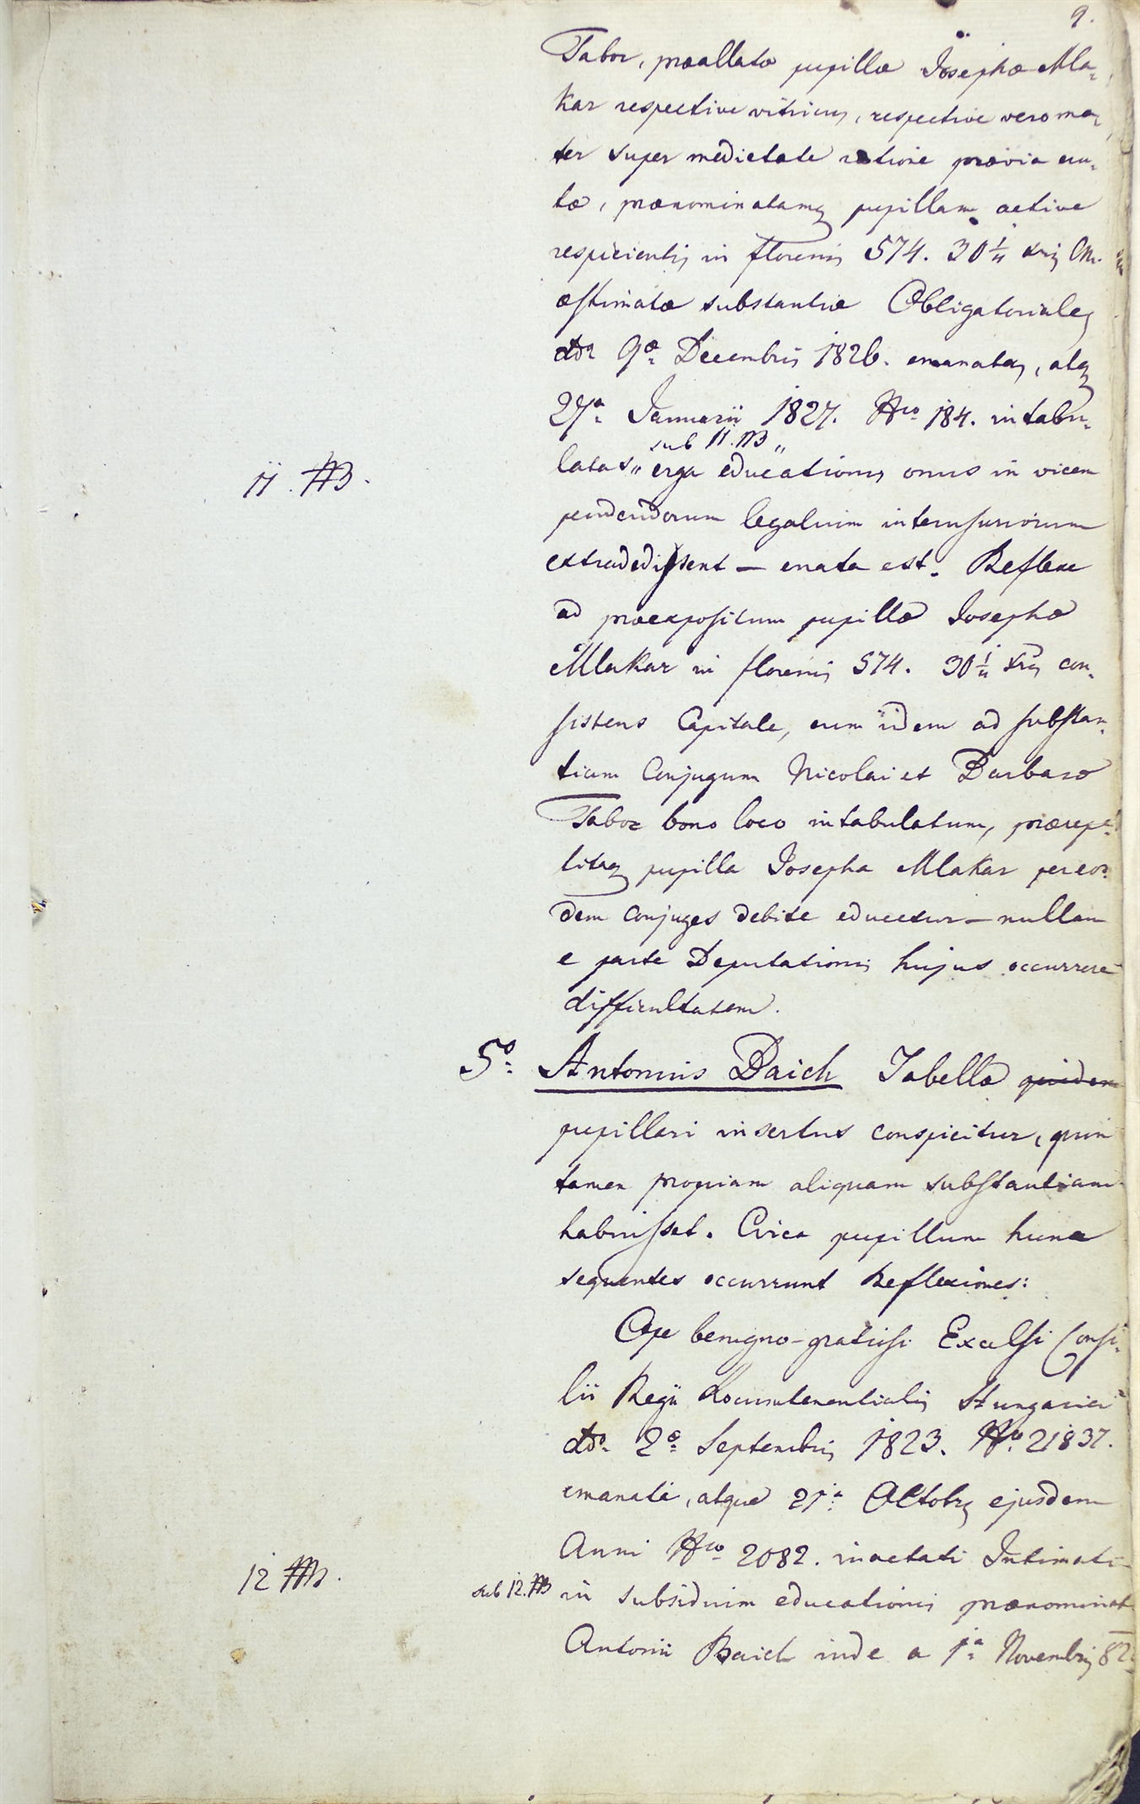 9.
Tabor, præallatæ pupillæ Josephæ Mla-
kar respective vitricus, respective vero ma-
ter super medietate ratione prævia eru-
tæ, prænominatamq pupillam active
respicientis in florenis 574. 30 1/4 xris
æstimatæ substantiæ Obligatoriales
ddo 9æ Decembris 1826. emanatas, atq
27a Januarii 1827. Nro 184. intabu-
sub 11. NB „
latas „ erga educationis onus in vicem
11. NB.
pendendorum legalium interusuriorum
extradedissent — enata est. Reflexe
ad præexpositum pupillæ Josephæ
Mlakar in florenis 574. 30 1/4 xris con-
sistens Capitale, cum idem ad substan-
tiam Conjugum Nicolai et Barbaræ
Tabor bono loco intabulatum, prærepe-
titaq pupilla Josepha Mlakar per eos-
dem conjuges debite educetur — nullam
e parte Deputationis hujus occurrere
difficultatem.
5o Antonius Baich Tabellæ quidem
pupillari insertus conspicitur, quin
tamen propriam aliquam substantiam
habuisset. Circa pupillum hunc
sequentes occurrunt Reflexiones:
Ope benigno-gratiosi Excelsi Consi-
lii Regii Locumtenentialis Hungarici
ddo 2a Septembris 1823. Nro 21837.
emanati, atque 21a Octobris ejusdem
Anni Nro 2082. inactati Intimati
12 NB.
sub 12. NB in subsidium educationis prænominati
Antonii Baich inde a 1a Novembris 82